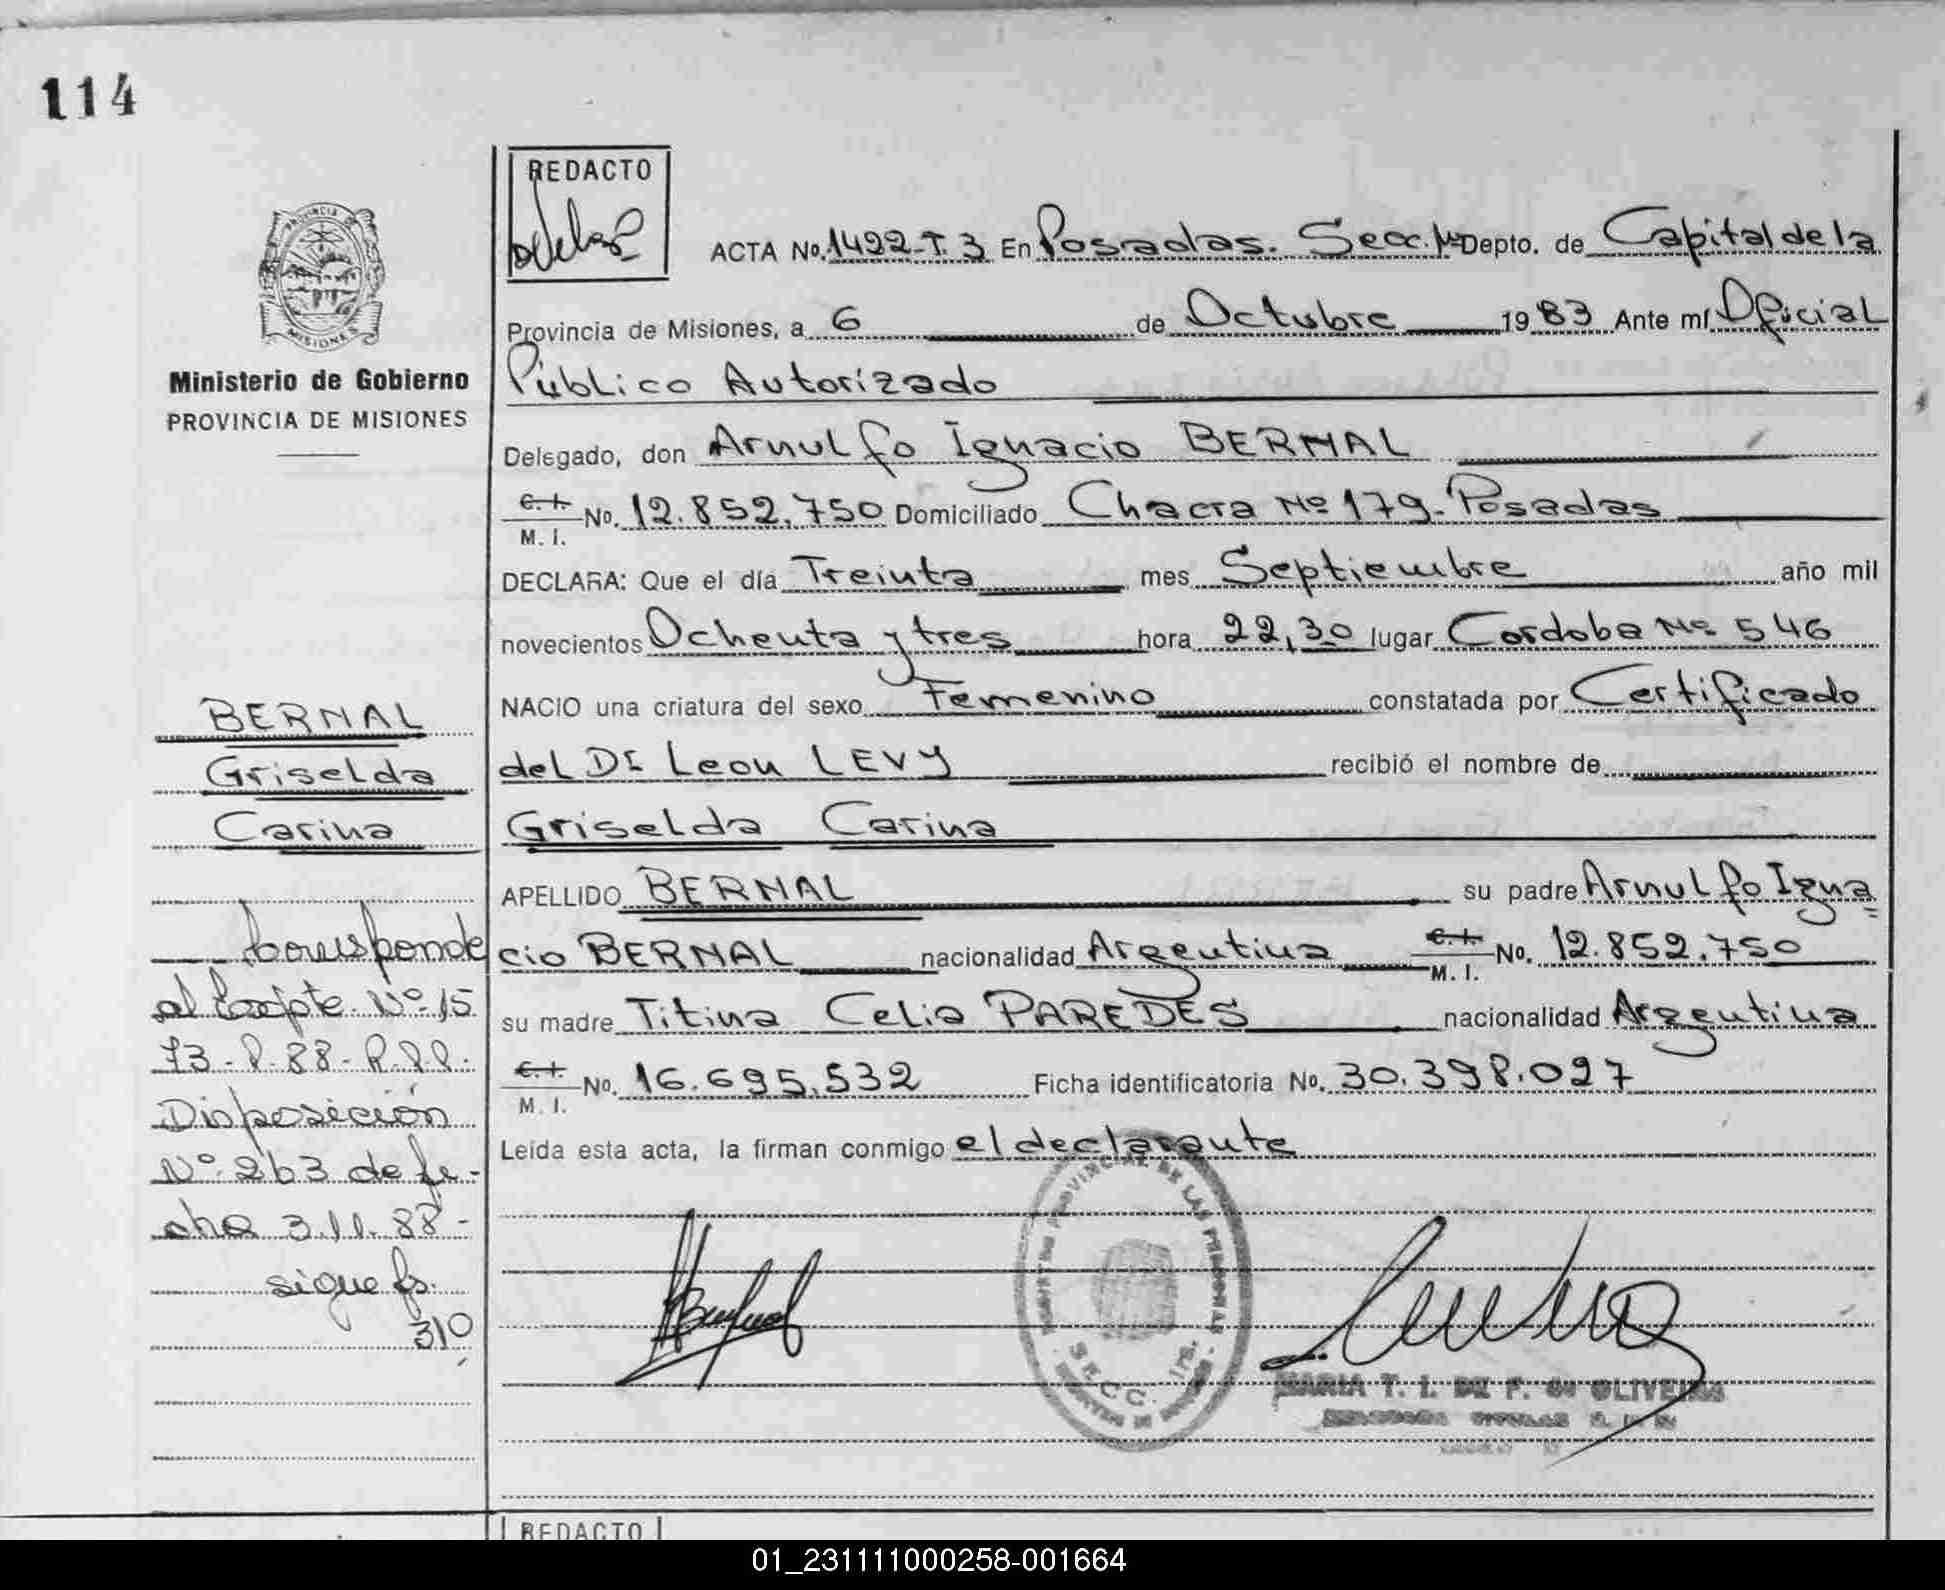 114
REDACTO
ACTA No. 1422-T.3 En Posadas. Secc. Depto. de Capital de la
Provincia de Misiones, a 6 de Octubre 1983 Ante mí Oficial
Público Autorizado
Delegado, don Arnulfo Ignacio BERNAL
C. I.
M. I. No. 12.852.750 Domiciliado Chacra Nº 179-Posadas
DECLARA: Que el día Treinta mes Septiembre año mil
novecientos Ochenta y tres hora 22,30 lugar Cordoba Nº 546
NACIO una criatura del sexo Femenino constatada por Certificado
del Dr Leon LEVY recibió el nombre de
Griselda Carina
APELLIDO BERNAL su padre Arnulfo Igna=
cio BERNAL nacionalidad Argentina C. I. M. I. No. 12.852.750
su madre Titina Celia PAREDES nacionalidad Argentina
C. I.
M. I. No. 16.695.532 Ficha identificatoria No. 30.398.027
Leída esta acta, la firman conmigo el declarante
PROVINCIA DE
MISIONES
Ministerio de Gobierno
PROVINCIA DE MISIONES
BERNAL
Griselda
Carina
Corresponde
al Expte. Nº 15
73-P-88-R.P.P.
Disposición
Nº 263 de fe-
cha 3.11.88-
sigue fs.
310
PROVINCIAL DE LAS PERSONAS
MARIA T. I. DE F. de OLIVEIRA
REDACTO
01_231111000258-001664